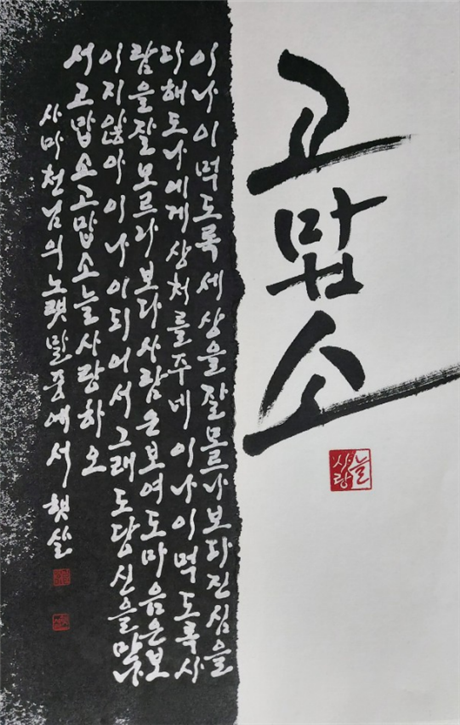 고맙소
늘사랑
이 나이 먹도록 세상을 잘 모르나 보다 진심을
다해도 나에게 상처를 주네 이 나이 먹도록 사
람을 잘 모르나 보다 사람은 보여도 마음은 보
이지 않아 이 나이 되어서 그래도 당신을 만나
서 고맙소 고맙소 늘 사랑하오
사마천님의 노랫말 중에서 햇살